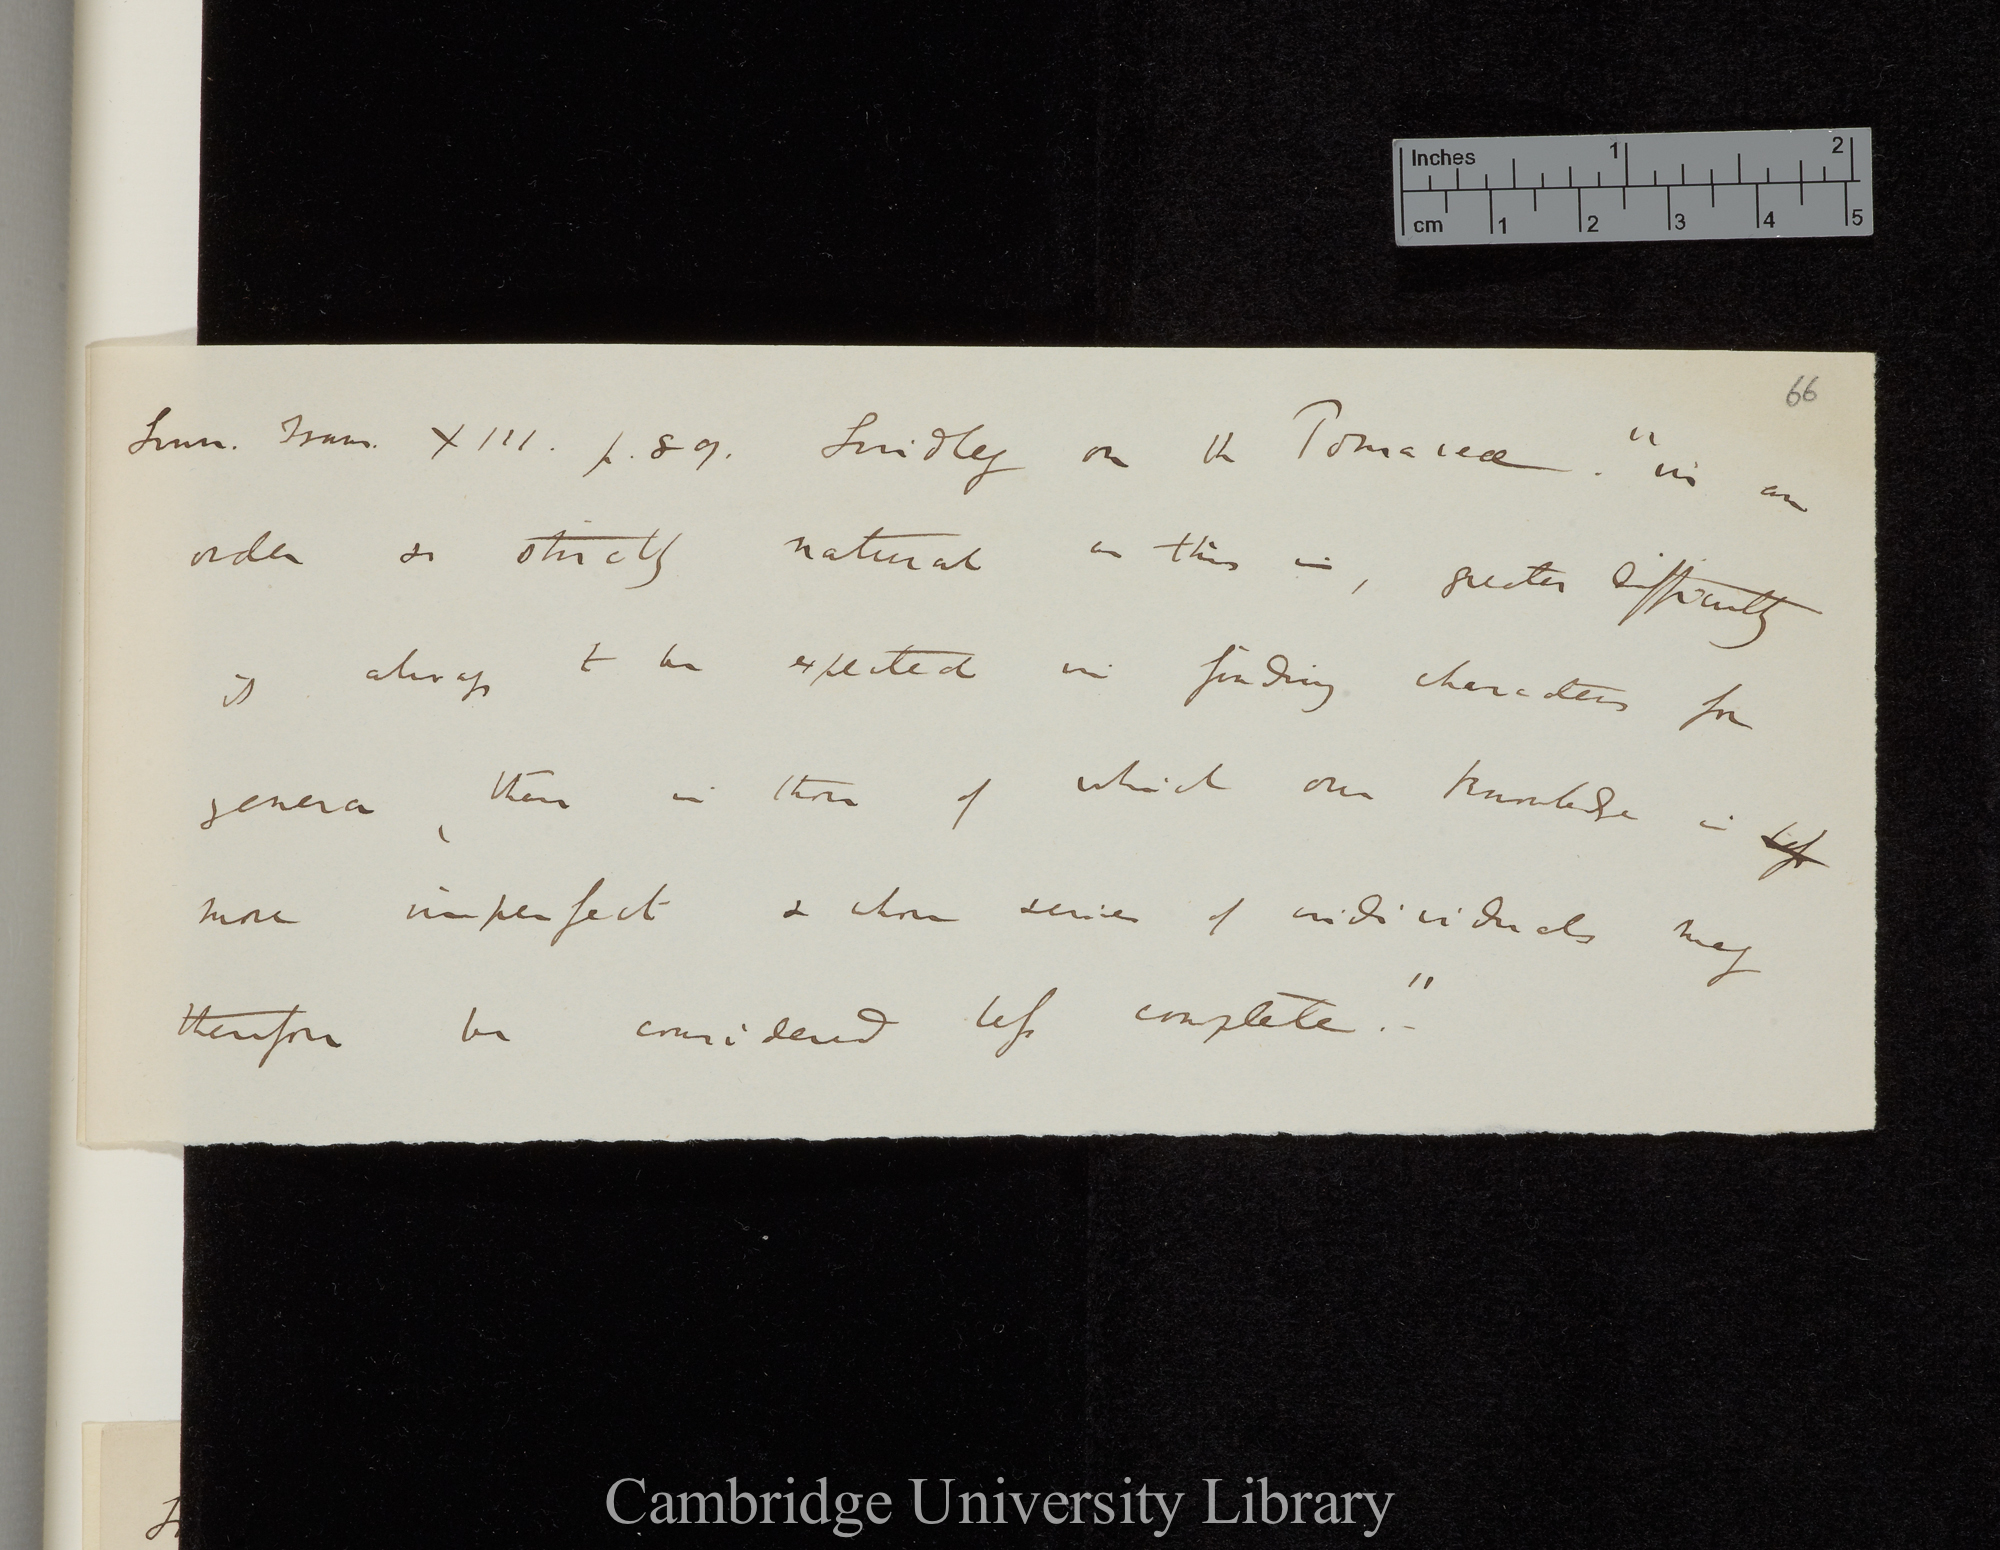 Inches 1 2
cm 1 2 3 4 5
66
Linn. Trans. XIII. p. 89. Lindley on the Pomaceæ. "in an
order so strictly natural as this is, greater difficulty
is always to be expected in finding characters for
genera, than in those of which our knowledge is less
more imperfect & whose series of individuals may
therefore be considered less complete."—
Cambridge University Library